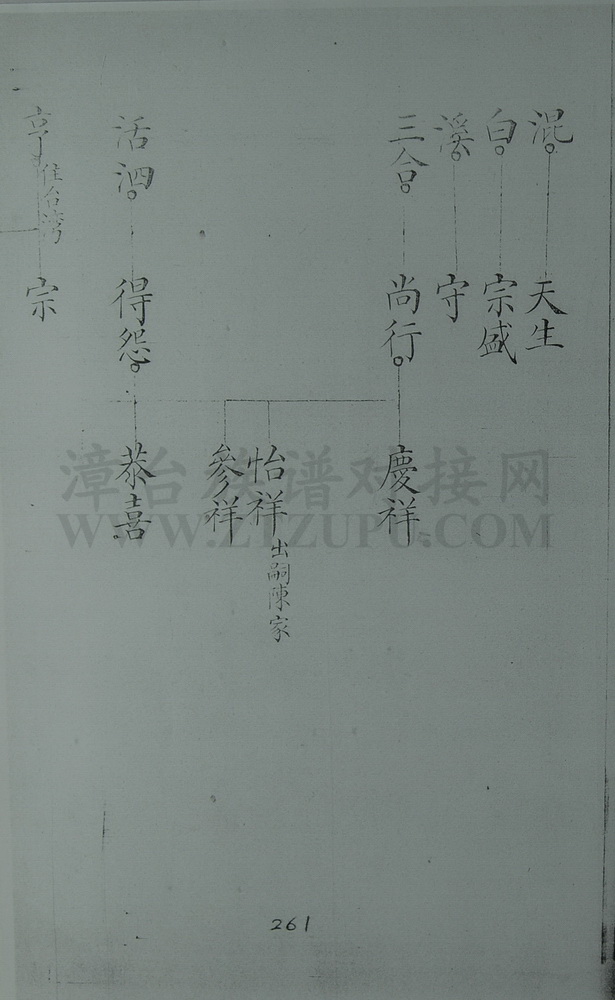 混 天生
白 宗盛
溪 守
三合 尚行 慶祥
怡祥 出嗣陳家
參祥
活泗 得怨 恭喜
亨 住台湾 宗
漳台族谱对接网
WWW.ZTZUPU.COM
261